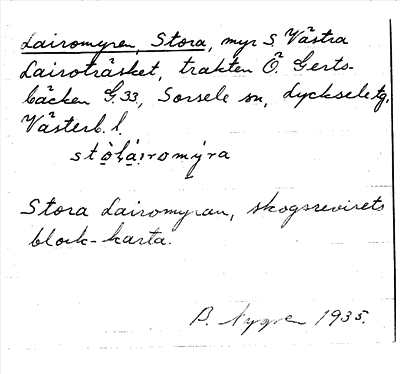 Lairomyren, Stora, myr S. Västra
Lairoträsket, trakten Ö. Gerts-
bäcken G. 33, Sorsele sn, Lycksele tg,
Västerb. l.
stòlái̯romýra
Stora Lairomyran, skogsrevirets
block-karta.
B. Nygren 1935.